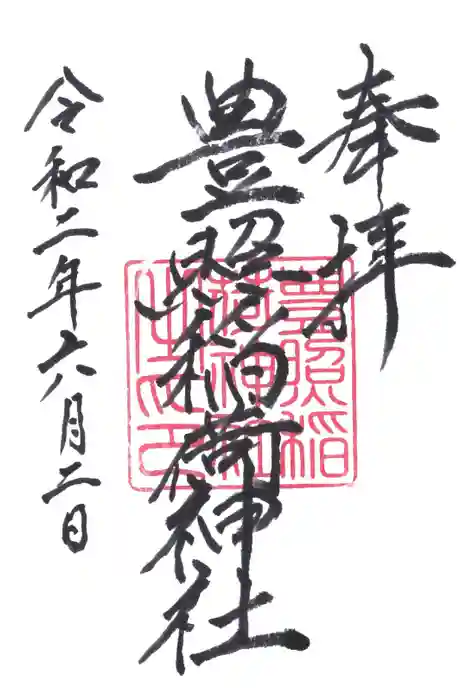 奉拝
豊照稲荷神社
豊照稲
荷神社
之印
令和二年六月二日